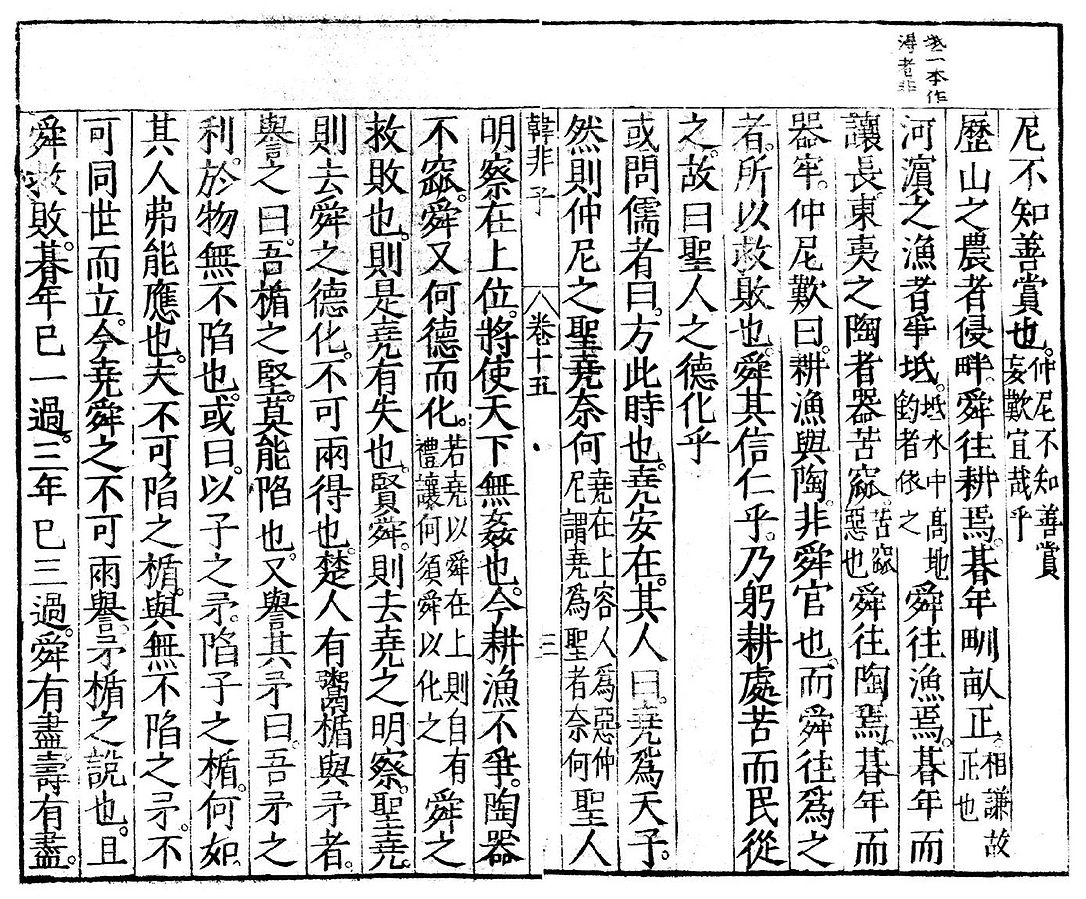 坻一本作
潯者非
尼不知善賞也。仲尼不知善賞妄歎宜哉乎
歷山之農者侵畔。舜往耕焉。朞年甽畝正。相謙故正也
河濵之漁者爭坻。坻水中髙地釣者依之舜往漁焉。朞年而
讓長。東夷之陶者器苦窳。苦窳惡也舜往陶焉。朞年而
器牢。仲尼歎曰。耕漁與陶。非舜官也。而舜往為之
者。所以救敗也。舜其信仁乎。乃躬耕處苦而民從
之。故曰聖人之德化乎
或問儒者曰。方此時也。堯安在。其人曰。堯為天子。
然則仲尼之聖堯奈何堯在上容人為惡仲尼謂堯為聖者奈何聖人
韓非子 卷十五 三
明察在上位。將使天下無姦也。今耕漁不爭。陶器
不窳。舜又何德而化。若堯以舜在上則自有禮讓何須舜以化之舜之
救敗也。則是堯有失也。賢舜。則去堯之明察。聖堯。
則去舜之德化。不可兩得也。楚人有鬻楯與矛者。
譽之曰。吾楯之堅。莫能陷也。又譽其矛曰。吾矛之
利。於物無不陷也。或曰。以子之矛。陷子之楯。何如。
其人弗能應也。夫不可陷之楯。與無不陷之矛。不
可同世而立。今堯舜之不可兩譽。矛楯之說也。且
舜救敗。朞年已一過。三年已三過。舜有盡。壽有盡。